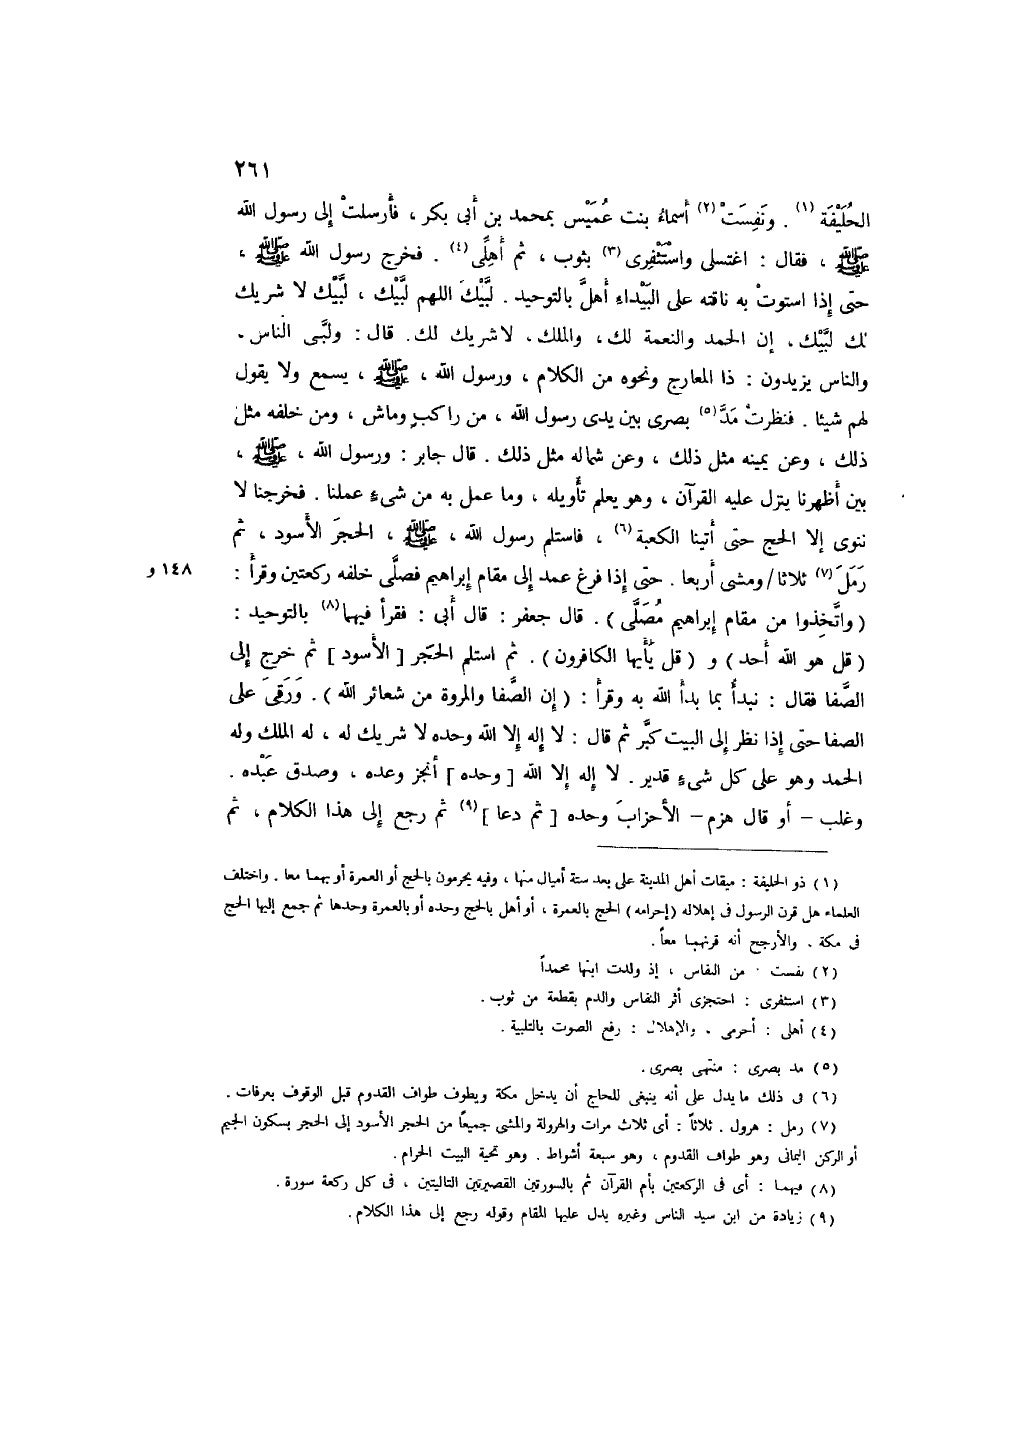 ٢٦١
الحُلَيْفَة (١) . ونَفِسَتْ (٢) أسماءُ بنت عُمَيْس بمحمد بن أبى بكر ، فأَرسلتْ إِلى رسول الله
ﷺ ، فقال : اغتسلى واسْتَثْفِرى (٣) بثوب ، ثم أَهِلِّى (٤) . فخرج رسول الله ﷺ ،
حتى إِذا استوتْ به ناقته على البَيْداءِ أهلَّ بالتوحيد . لَبَّيْكَ اللهم لبَّيْك ، لبَّيْك لا شريك
لك لبَّيْك، إن الحمد والنعمة لك، والملك، لاشريك لك. قال : ولبَّى الناس.
والناس يزيدون : ذا المعارج ونحوه من الكلام ، ورسول الله ، ﷺ ، يسمع ولا يقول
لهم شيئا . فنظرتْ مَدَّ (٥) بصرى بين يدى رسول الله ، من راكبٍ وماش ، ومن خلفه مثل
ذلك ، وعن يمينه مثل ذلك ، وعن شماله مثل ذلك . قال جابر : ورسول الله ، ﷺ ،
بين أَظهرنا ينزل عليه القرآن ، وهو يعلم تأْويله ، وما عمل به من شىءٍ عملنا . فخرجنا لا
ننوى إِلا الحج حتى أَتينا الكعبة (٦) ، فاستلم رسول الله ، ﷺ ، الحجرَ الأَسود ، ثم
رَمَلَ (٧) ثلاثا/ومشى أَربعا . حتى إذا فرغ عمد إلى مقام إِبراهيم فصلَّى خلفه ركعتين وقرأَ :
١٤٨ و
( واتَّخِذوا من مقام إِبراهيم مُصَلًّى ) . قال جعفر : قال أَبى : فقرأ فيهما (٨) بالتوحيد :
( قل هو الله أَحد ) و ( قل يٰأَيها الكافرون ) . ثم استلم الحَجر [ الأَسود ] ثم خرج إِلى
الصَّفا فقال : نبدأُ بما بدأَ الله به وقرأَ : ( إِن الصَّفا والمروة من شعائر الله ) . وَرَقِىَ على
الصفا حتى إِذا نظر إِلى البيت كبَّر ثم قال : لا إِله إِلا الله وحده لا شريك له ، له الملك وله
الحمد وهو على كل شىءٍ قدير . لا إله إلا الله [ وحده ] أنجز وعده ، وصدق عَبْده .
وغلب – أو قال هزم – الأَحزابَ وحده [ ثم دعا ] (٩) ثم رجع إِلى هذا الكلام ، ثم
(١) ذو الحليفة : ميقات أهل المدينة على بعد ستة أميال منها ، وفيه يحرمون بالحج أو العمرة أو بهما معا . واختلف
العلماء هل قرن الرسول فى إهلاله (إحرامه) الحج بالعمرة ، أو أهل بالحج وحده أو بالعمرة وحدها ثم جمع إليها الحج
فى مكة . والأرجح أنه قرنهما معاً.
(٢) نفست : من النفاس ، إذ ولدت ابنها محمداً
(٣) استثفرى : احتجزى أثر النفاس والدم بقطعة من ثوب .
(٤) أهلى : أحرمى . والإهلال : رفع الصوت بالتلبية .
(٥) مد بصرى : منتهى بصرى .
(٦) فى ذلك ما يدل على أنه ينبغى للحاج أن يدخل مكة ويطوف طواف القدوم قبل الوقوف بعرفات .
(٧) رمل : هرول . ثلاثاً : أى ثلاث مرات والهرولة والمشى جميعًا من الحجر الأسود إلى الحجر بسكون الجيم
أو الركن اليمانى وهو طواف القدوم ، وهو سبعة أشواط . وهو تحية البيت الحرام .
(٨) فيهما : أى فى الركعتين بأم القرآن ثم بالسورتين القصيرتين التاليتين ، فى كل ركعة سورة .
(٩) زيادة من ابن سيد الناس وغيره يدل عليها المقام وقوله رجع إلى هذا الكلام .